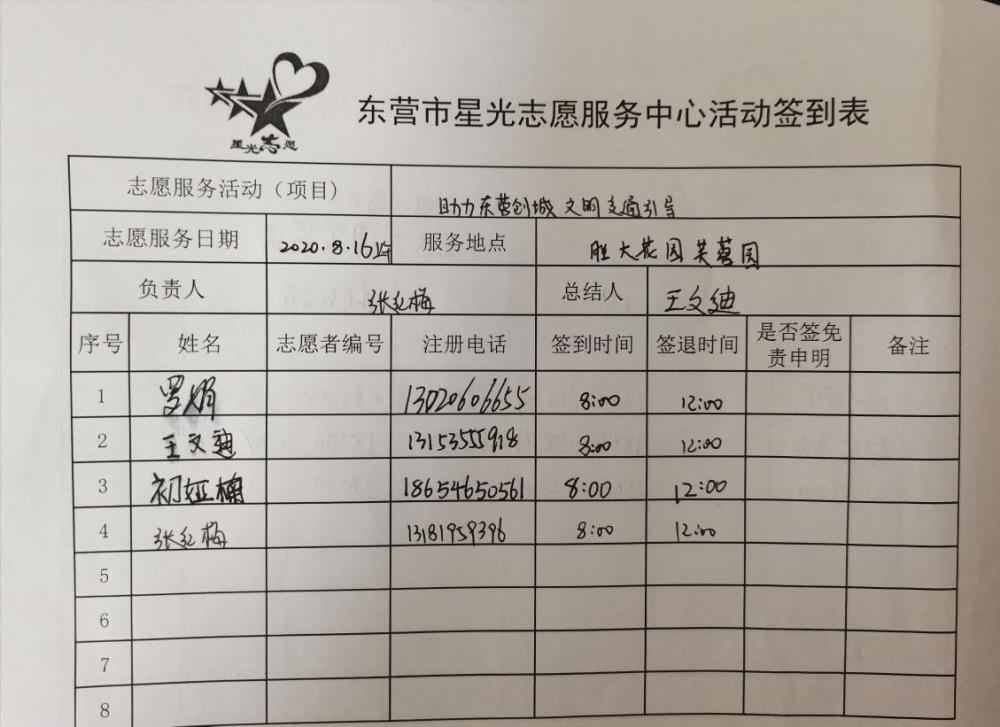 星光志愿
东营市星光志愿服务中心活动签到表
志愿服务活动（项目） 助力东营创城 文明交通引导
志愿服务日期 2020.8.16上午 服务地点 胜大花园芙蓉园
负责人 张红梅 总结人 王文迪
序号 姓名 志愿者编号 注册电话 签到时间 签退时间 是否签免责申明 备注
1 罗娟 13020606655 8:00 12:00
2 王文迪 13153555918 8:00 12:00
3 初娅楠 18654650561 8:00 12:00
4 张红梅 13181959396 8:00 12:00
5
6
7
8